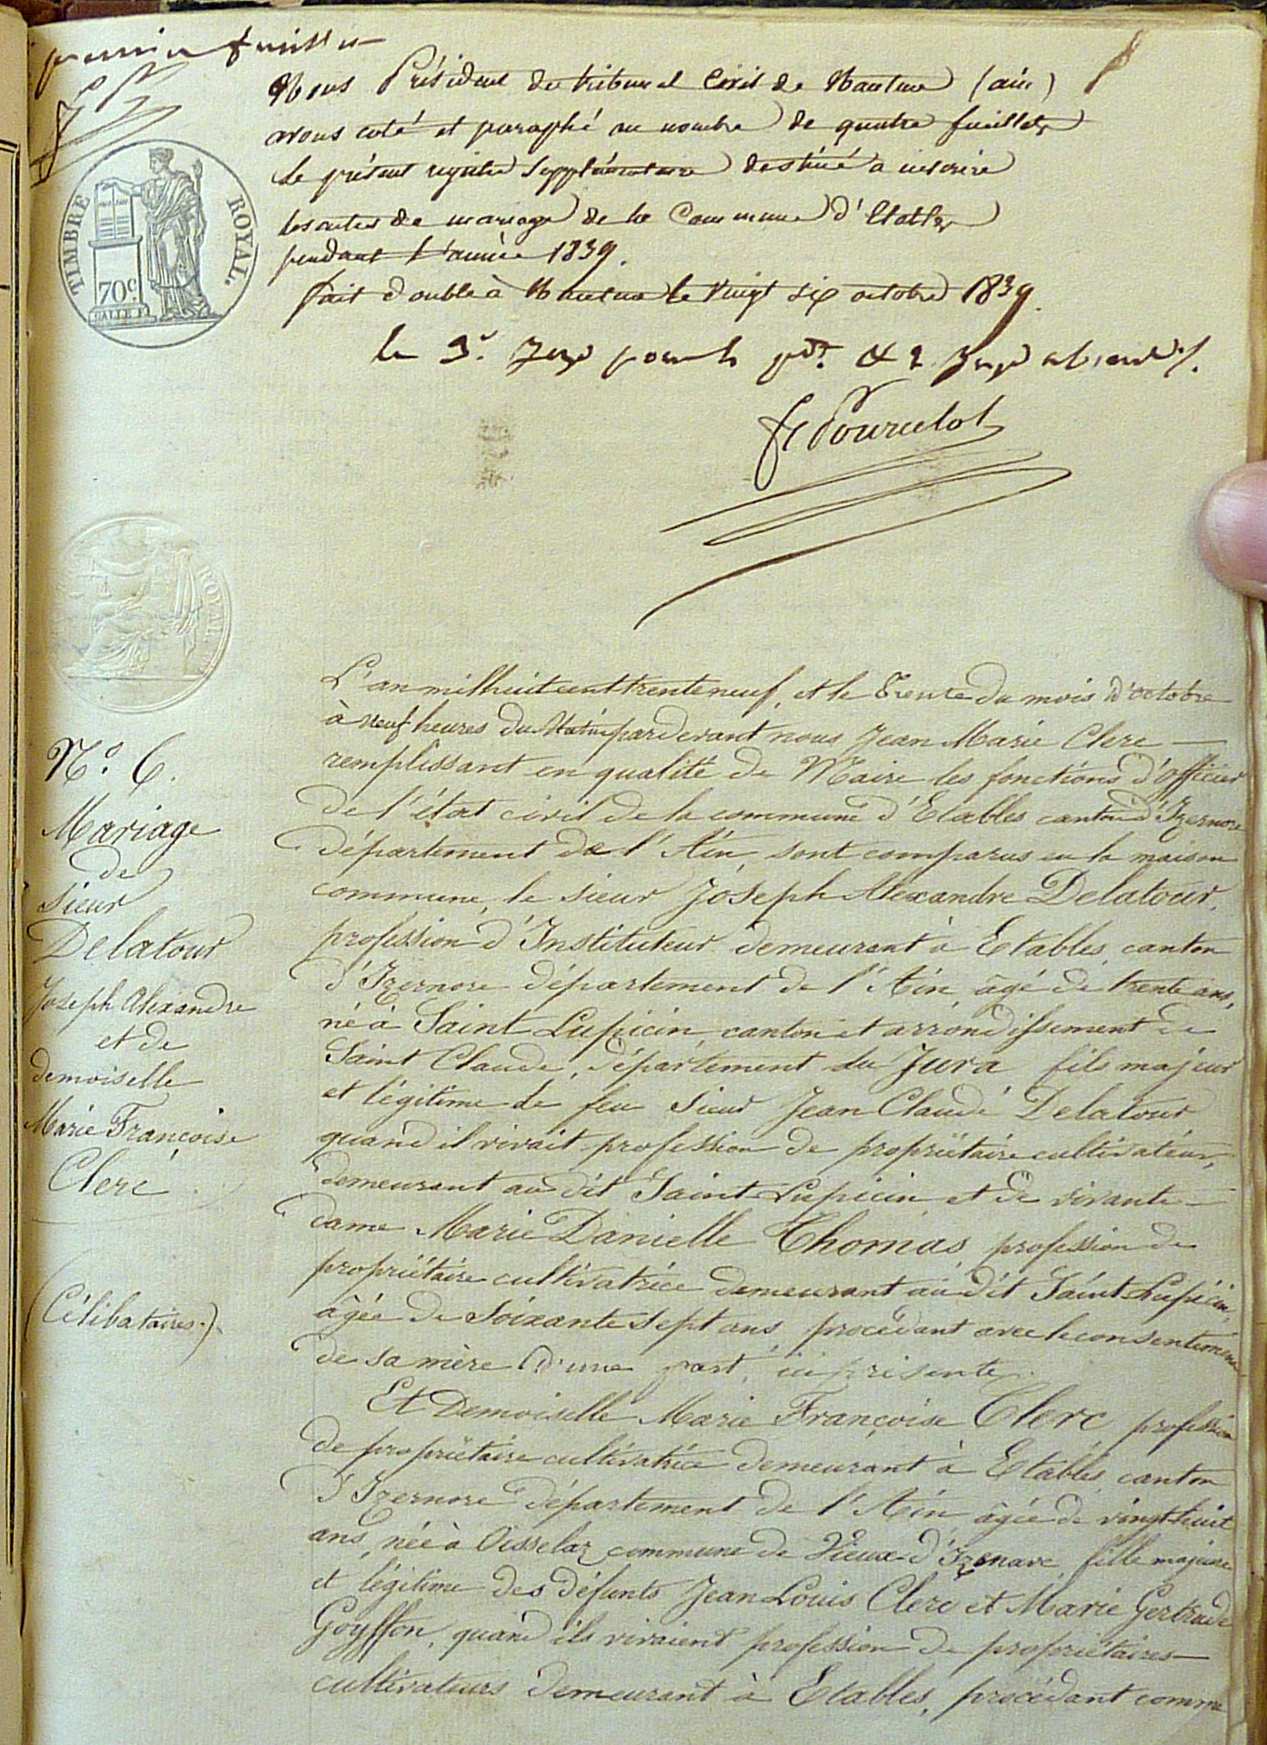 premier feuillet
Nous Président du tribunal Civil de Nantua (ain)
avons coté et paraphé au nombre de quatre feuillets
le présent registre supplémentaire destiné à inscrire
les actes de mariage de la Commune d'Etables
pendant l'année 1839.
fait double à Nantua le vingt six octobre 1839.
le 3e. Juge pour le pdt. & 2 Juge absents /.
Pourcelot
TIMBRE ROYAL.
70c.
N°. 6.
Mariage
de
sieur
Delatour
Joseph Alexandre
et de
demoiselle
Marie Françoise
Clerc
(Célibataires.)
L'an mil huit cent trente neuf, et le Trente du mois d'octobre
à neuf heures du Matin pardevant nous Jean Marie Clerc
remplissant en qualité de Maire les fonctions d'officier
de l'état civil de la commune d'Etables canton d'Izernore
département de l'Ain, sont comparus en la maison
commune, le sieur Joseph Alexandre Delatour,
profession d'Instituteur demeurant à Etables, canton
d'Izernore département de l'Ain, âgé de trente ans,
né à Saint Lupicin, canton et arrondissement de
Saint Claude, département du Jura fils majeur
et légitime de feu Sieur Jean Claude Delatour
quand il vivait profession de propriétaire cultivateur,
demeurant au dit Saint Lupicin et de vivante
dame Marie Danielle Thomas profession de
propriétaire cultivatrice demeurant au dit Saint Lupicin,
âgée de Soixante sept ans procédant avec le consentement
de sa mère d'une part, ici présente.
Et Demoiselle Marie Françoise Clerc profession
de propriétaire cultivatrice demeurant à Etables, canton
d'Izernore département de l'Ain âgée de vingt-huit
ans, née à Oisselaz commune de Vieux-d'Izenave, fille majeure
et légitime des défunts Jean Louis Clerc et Marie Gertrude
Goyffon, quand ils vivaient profession de propriétaires
cultivateurs demeurant à Etables, procédant comme